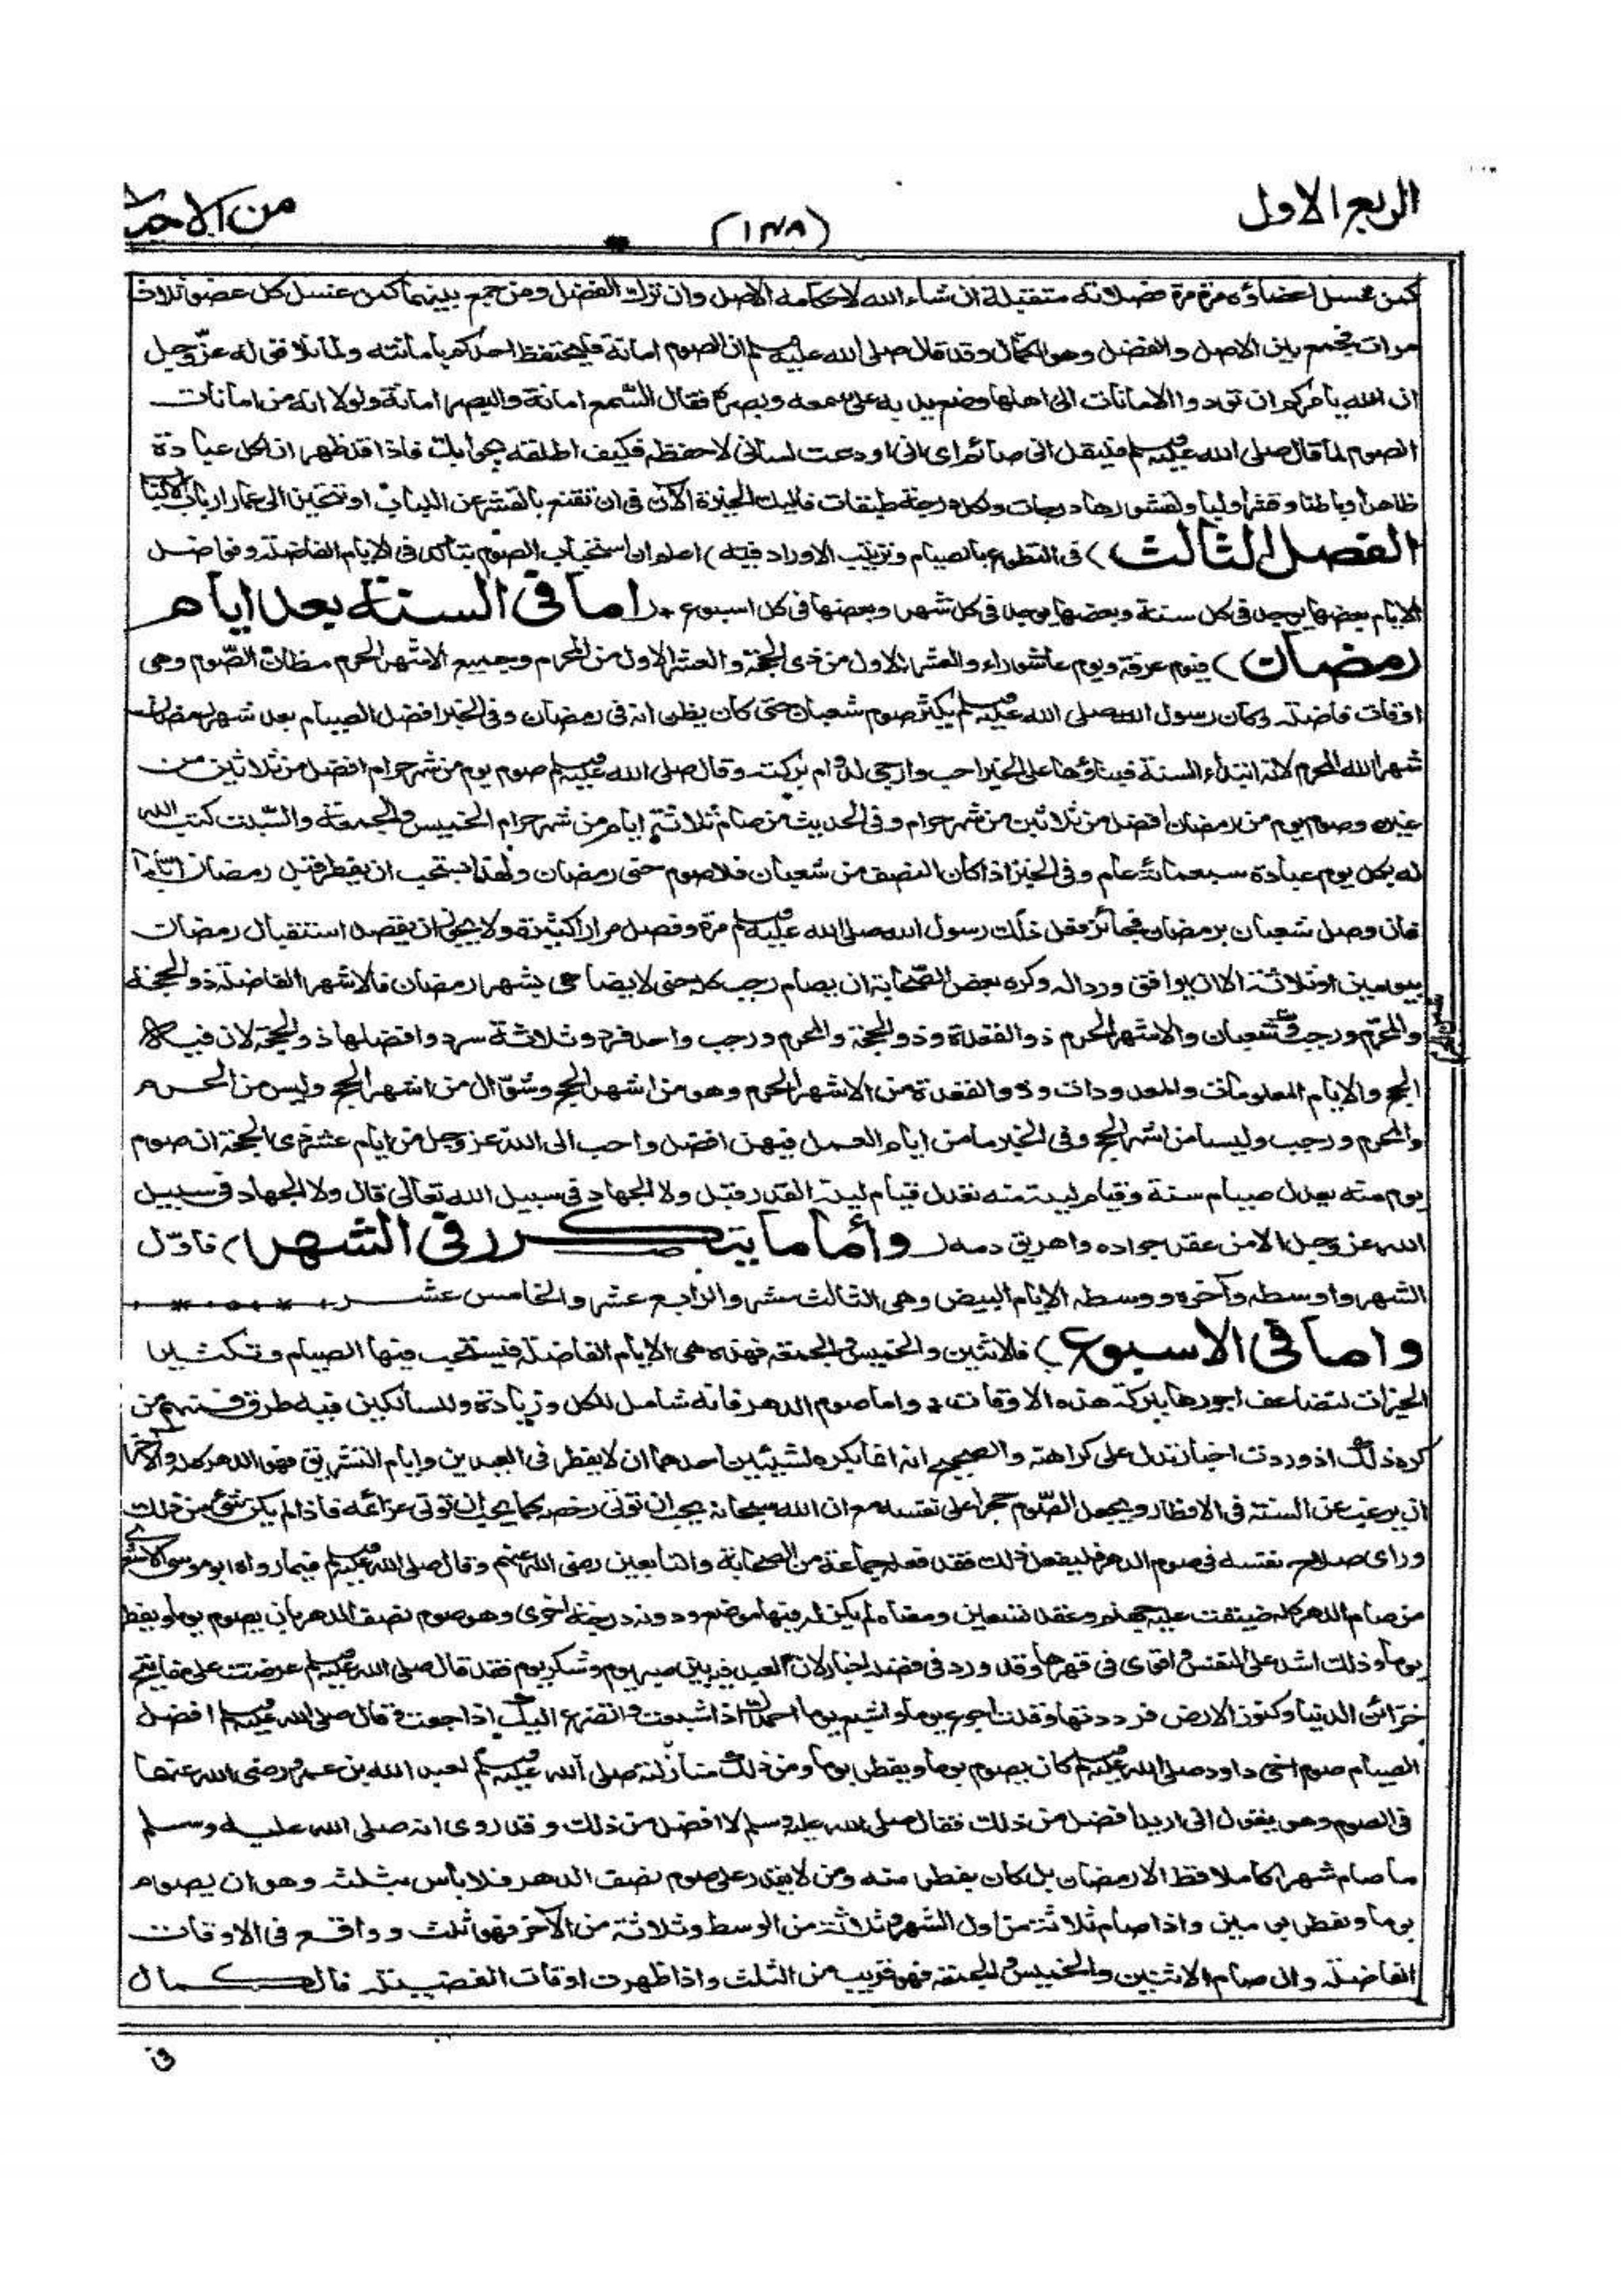 الربع الاول
(١٣٨)
من الاحياء
كمن غسل اعضاؤه مرة مرة فصلاته متقبلة ان شاء الله لاحكامه الاصل وان ترك الفضل ومن جمع بينهما كمن غسل كل عضو ثلاث
مرات فجمع بين الاصل والفضل وهو الكمال وقد قال صلى الله عليه وسلم ان الصوم امانة فليحتفظ احدكم بامانته ولما تلا قوله عز وجل
ان الله يأمركم ان تؤدوا الامانات الى اهلها وضع يده على سمعه وبصره فقال السّمع امانة والبصر امانة ولولا انه من امانات
الصوم لما قال صلى الله عليه وسلم فليقل انى صائم اى انى اودعت لسانى لاحفظه فكيف اطلقه بجوابك فاذا قد ظهر ان لكل عبادة
ظاهرا وباطنا وقشرا ولبا ولقشورها درجات ولكل درجة طبقات فاليك الخيرة الآن فى ان تقنع بالقشر عن اللباب او تتحيز الى غمار ارباب الالباب
الفصل الثالث) فى التطوع بالصيام وترتيب الاوراد فيه) اعلم ان استحباب الصوم يتاكد فى الايام الفاضلة وفواضل
الايام بعضها يوجد فى كل سنة وبعضها يوجد فى كل شهر وبعضها فى كل اسبوع (اما فى السنة بعد ايام
رمضان) فيوم عرفة ويوم عاشوراء والعشر الاول من ذى الحجة والعشر الاول من المحرم وجميع الاشهر الحرم مظان الصّوم وهى
اوقات فاضلة وكان رسول الله صلى الله عليه وسلم يكثر صوم شعبان حتى كان يظن انه فى رمضان وفى الخبر افضل الصيام بعد شهر رمضان
شهر الله المحرم لانه ابتداء السنة فبناؤها على الخير احب وارجى لدوام بركته وقال صلى الله عليه وسلم صوم يوم من شهر حرام افضل من ثلاثين من
غيره وصوم يوم من رمضان افضل من ثلاثين من شهر حرام وفى الحديث من صام ثلاثة ايام من شهر حرام الخميس والجمعة والسّبت كتب الله
له بكل يوم عبادة سبعمائة عام وفى الخبر اذا كان النصف من شعبان فلا صوم حتى رمضان ولهذا يستحب ان يفطر قبل رمضان اياما
فان وصل شعبان برمضان فجائز فعل ذلك رسول الله صلى الله عليه وسلم مرة وفصل مرارا كثيرة ولا يجوز ان يقصد استقبال رمضان
بيومين او ثلاثة الا ان يوافق وردا له وكره بعض الصّحابة ان يصام رجب كله حتى لا يضاهى بشهر رمضان فالاشهر الفاضلة ذو الحجة
والمحرم ورجب وشعبان والاشهر الحرم ذو القعدة وذو الحجة والمحرم ورجب واحد فرد وثلاثة سرد وافضلها ذو الحجة لان فيه
الحج والايام المعلومات والمعدودات وذو القعدة من الاشهر الحرم وهو من اشهر الحج وشوّال من اشهر الحج وليس من الحرم
والمحرم ورجب وليسا من اشهر الحج وفى الخبر ما من ايام العمل فيهن افضل واحب الى الله عز وجل من ايام عشر ذى الحجة ان صوم
يوم منه يعدل صيام سنة وقيام ليلة منه تعدل قيام ليلة القدر قيل ولا الجهاد فى سبيل الله تعالى قال ولا الجهاد فى سبيل
الله عز وجل الا من عقر جواده واهريق دمه (وأما ما يتكرر فى الشهر) فاوّل
الشهر واوسطه وآخره ووسطه الايام البيض وهى الثالث عشر والرابع عشر والخامس عشر
واما فى الاسبوع) فالاثنين والخميس والجمعة فهذه هى الايام الفاضلة فيستحب فيها الصيام وتكثير
الخيرات لتضاعف اجورها ببركة هذه الاوقات واما صوم الدهر فانه شامل للكل وزيادة وللسالكين فيه طرق فمنهم من
كره ذلك اذ وردت اخبار تدل على كراهته والصحيح انه انما يكره لشيئين احدهما ان لا يفطر فى العيدين وايام التشريق فهو الدهر كله والآخر
ان يرغب عن السنة فى الافطار ويجعل الصّوم حجرا على نفسه مع ان الله سبحانه يحب ان تؤتى رخصه كما يحب ان تؤتى عزائمه فاذا لم يكن شئ من ذلك
وراى صلاح نفسه فى صوم الدهر فليفعل ذلك فقد فعله جماعة من الصحابة والتابعين رضى الله عنهم وقال صلى الله عليه وسلم فيما رواه ابو موسى الاشعرى
من صام الدهر كله ضيقت عليه جهنم وعقد تسعين ومعناه لم يكن له فيها موضع ودونه درجة اخرى وهو صوم نصف الدهر بان يصوم يوما ويفطر
يوما وذلك اشد على النفس واقوى فى قهرها وقد ورد فى فضله اخبار لان العبد فيه بين صبر يوم وشكر يوم فقد قال صلى الله عليه وسلم عرضت على مفاتيح
خزائن الدنيا وكنوز الارض فرددتها وقلت اجوع يوما واشبع يوما احمدك اذا شبعت واتضرع اليك اذا جعت وقال صلى الله عليه وسلم افضل
الصيام صوم اخى داود صلى الله عليه وسلم كان يصوم يوما ويفطر يوما ومن ذلك منازلته صلى الله عليه وسلم لعبد الله بن عمرو رضى الله عنهما
فى الصوم وهو يقول انى اريد افضل من ذلك فقال صلى الله عليه وسلم لا افضل من ذلك وقد روى انه صلى الله عليه وسلم
ما صام شهرا كاملا قط الا رمضان بل كان يفطر منه ومن لا يقدر على صوم نصف الدهر فلا بأس بثلثه وهو ان يصوم
يوما ويفطر يومين واذا صام ثلاثة من اول الشهر وثلاثة من الوسط وثلاثة من الآخر فهو ثلث وواقع فى الاوقات
الفاضلة وان صام الاثنين والخميس والجمعة فهو قريب من الثلث واذا ظهرت اوقات الفضيلة فالكمال
فى